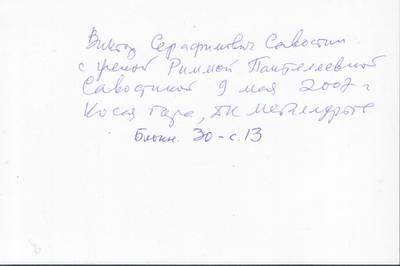 Виктор Серафимович Савостин
с женой Риммой Пантелеевной
Савостиной 9 мая 2007 г
Косая Гора, ДК металлургов
Блокн. 30-с.13